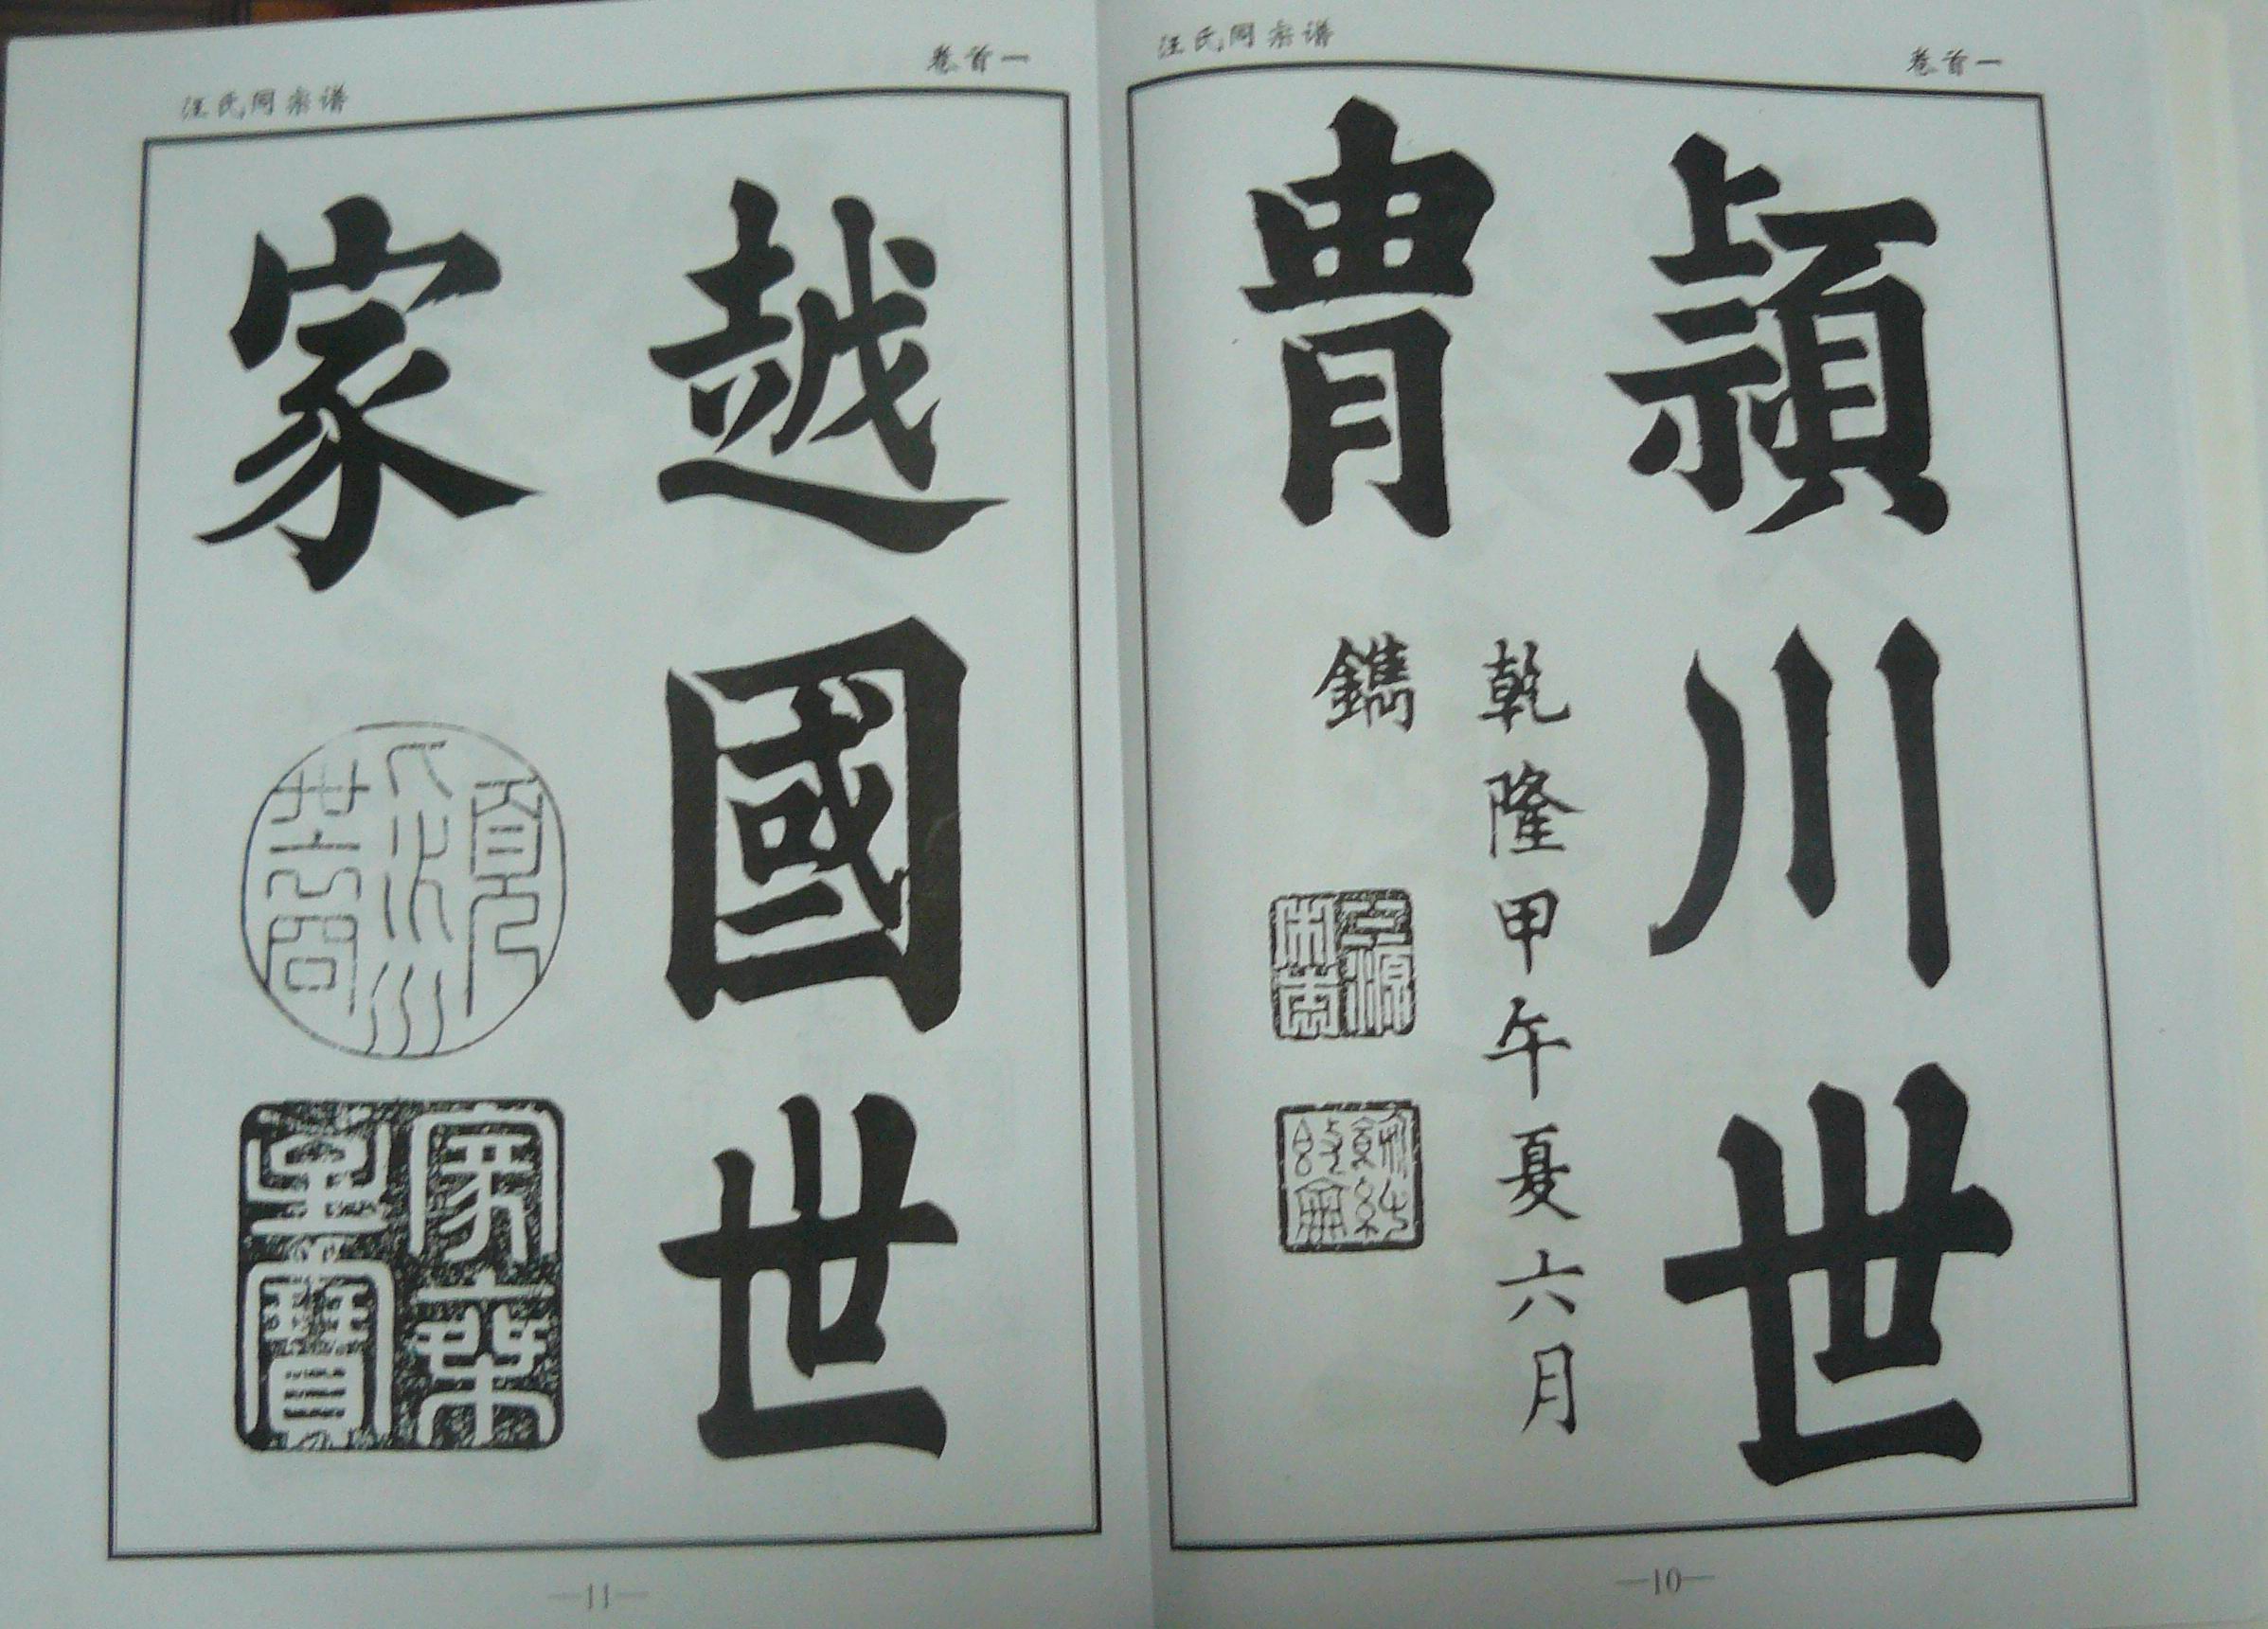 汪氏同宗谱
卷首一
穎川世
胄
乾隆甲午夏六月
鐫
—10—
汪氏同宗谱
卷首一
越國世
家
—11—